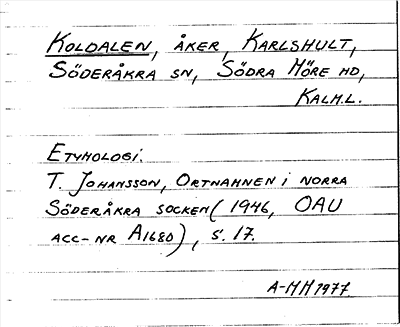 KOLDALEN, ÅKER, KARLSHULT,
SÖDERÅKRA SN, SÖDRA MÖRE HD,
KALM.L.
ETYMOLOGI:
T. JOHANSSON, ORTNAMNEN I NORRA
SÖDERÅKRA SOCKEN (1946, OAU
ACC-NR A1680), S. 17.
A-MH 1977